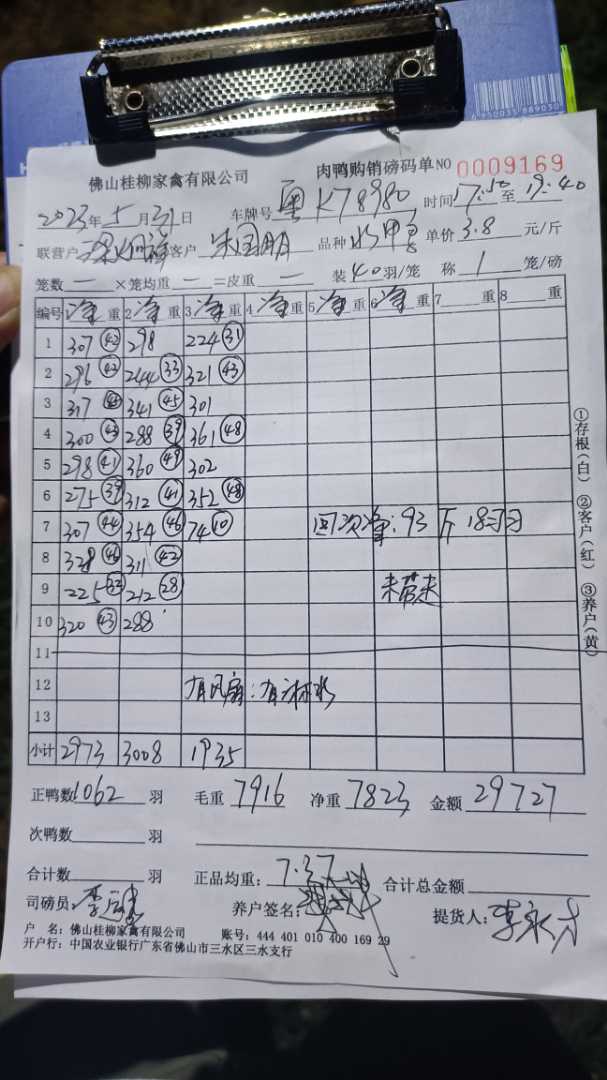 佛山桂柳家禽有限公司 肉鸭购销磅码单 NO 0009169
2023年5月31日 车牌号 粤K78980 时间 17:50 至 19:40
联营户 客户 朱国朋 品种 水甲 单价 3.8 元/斤
笼数 — ×笼均重 — =皮重 — 装 40 羽/笼 称 1 笼/磅
编号 1净重 2净重 3净重 4净重 5净重 6净重 7 重 8 重
1 307 (42) 298 224 (31)
2 296 (42) 244 (33) 321 (43)
3 317 341 (45) 301
4 300 (43) 288 (39) 361 (48)
5 298 (41) 360 (49) 302
6 275 (39) 312 (41) 352 (48)
7 307 (44) 354 (46) 74 (10) 回次净单:93斤 18
8 328 (46) 311 (42)
9 225 (32) 212 (28) 未带走
10 320 (43) 288
11
12 有风扇:有淋水
13
小计 2973 3008 1935
正鸭数 1062 羽 毛重 7916 净重 7823 金额 29727
次鸭数 羽
合计数 羽 正品均重: 7.37 合计总金额
司磅员: 养户签名: 提货人: 李永才
户 名: 佛山桂柳家禽有限公司 账号: 444 401 010 400 169 29
开户行: 中国农业银行广东省佛山市三水区三水支行
①存根(白) ②客户(红) ③养户(黄)